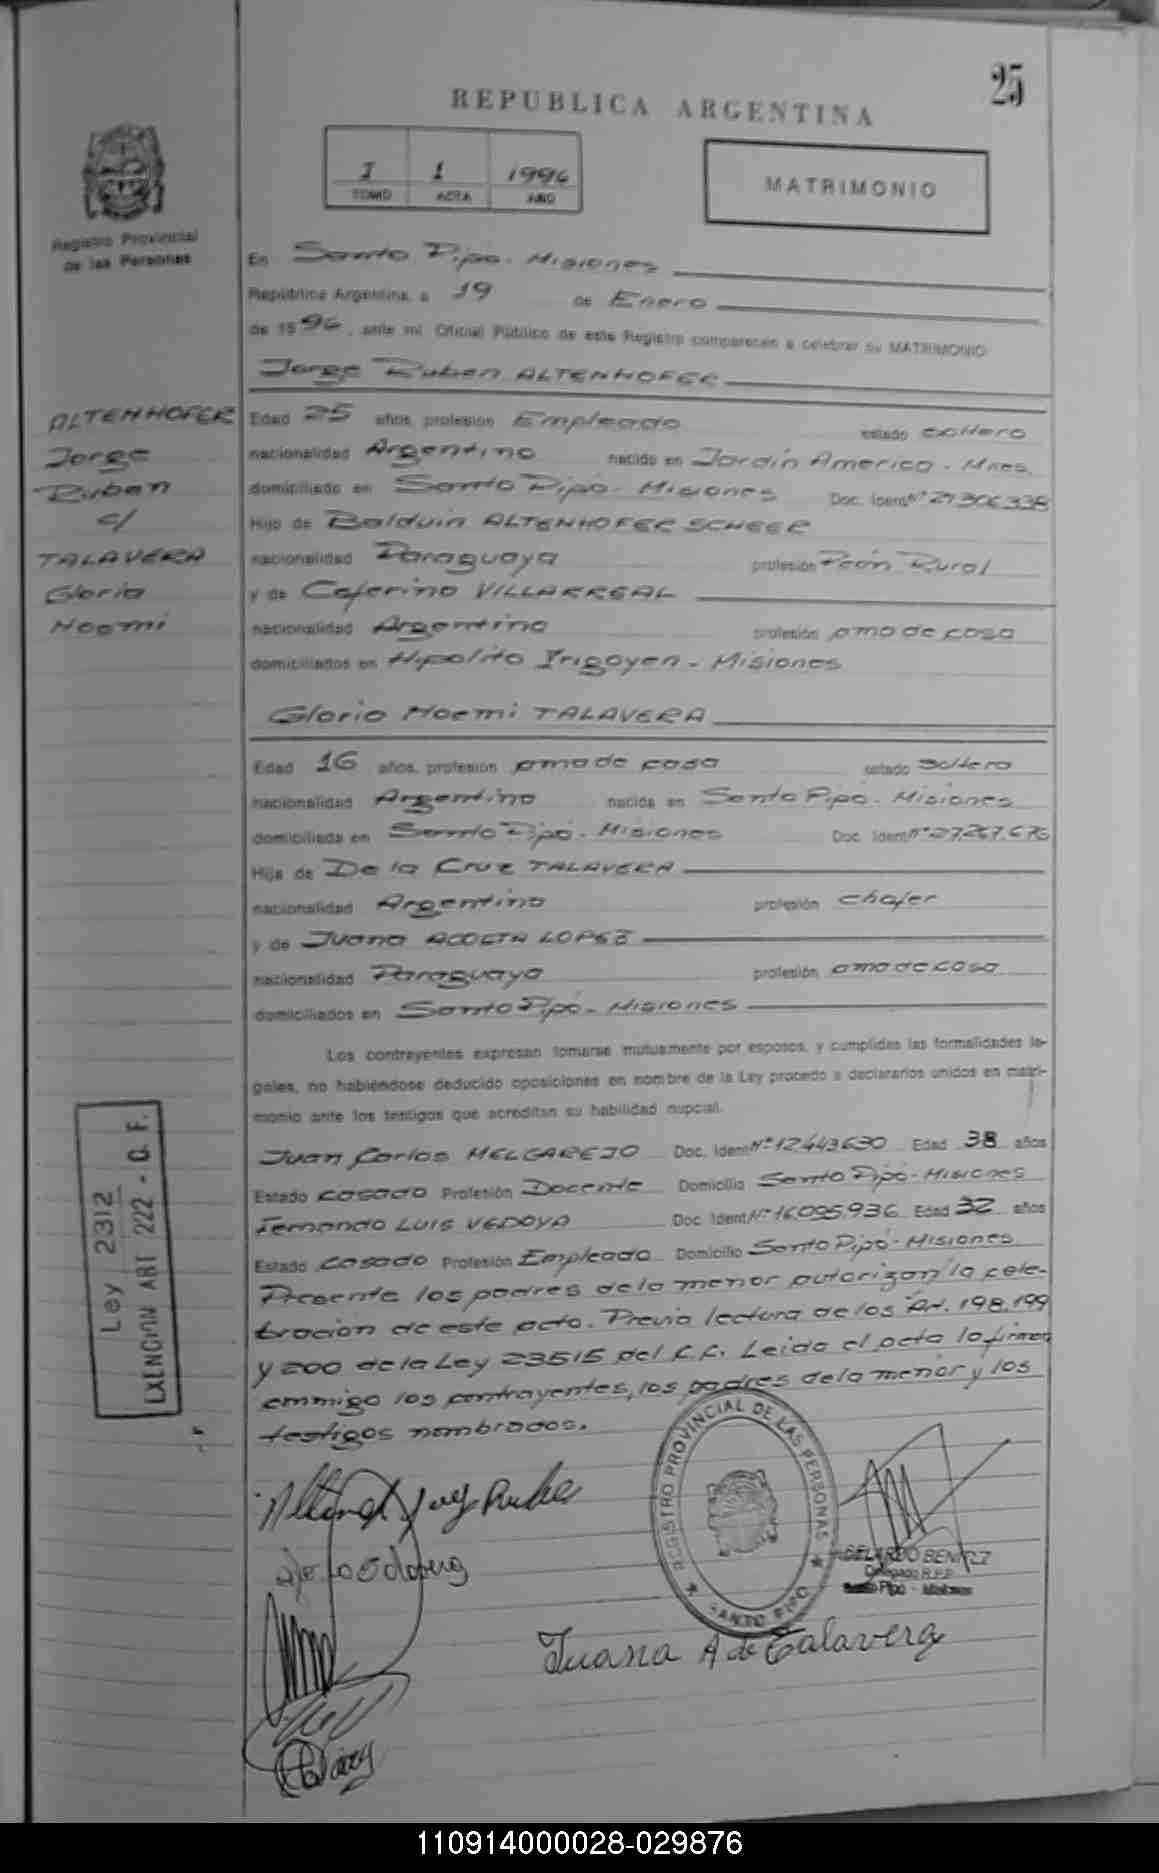 25
REPUBLICA ARGENTINA
I 1 1996
TOMO ACTA AÑO
MATRIMONIO
Registro Provincial
de las Personas
En Santo Pipó - Misiones
República Argentina, a 19 de Enero
de 1996, ante mí, Oficial Público de este Registro comparecen a celebrar su MATRIMONIO
Jorge Ruben ALTENHOFER
ALTENHOFER
Jorge
Ruben
c/
TALAVERA
Gloria
Noemi
Edad 25 años, profesión Empleado estado soltero
nacionalidad Argentino nacido en Jardín America - Mnes.
domiciliado en Santo Pipó - Misiones Doc. Ident Nº 21.306.338
Hijo de Balduin ALTENHOFER SCHEER
nacionalidad Paraguaya profesión Peón Rural
y de Ceferina VILLARREAL
nacionalidad Argentina profesión ama de casa
domiciliados en Hipolito Irigoyen - Misiones
Gloria Noemi TALAVERA
Edad 16 años, profesión ama de casa estado soltera
nacionalidad Argentina nacida en Santo Pipó - Misiones
domiciliada en Santo Pipó - Misiones Doc. Ident Nº 27.267.676
Hija de De la Cruz TALAVERA
nacionalidad Argentino profesión chofer
y de Juana ACOSTA LOPEZ
nacionalidad Paraguaya profesión ama de casa
domiciliados en Santo Pipó - Misiones
Los contrayentes expresan tomarse mutuamente por esposos, y cumplidas las formalidades le-
gales, no habiéndose deducido oposiciones en nombre de la Ley procedo a declararlos unidos en matri-
monio ante los testigos que acreditan su habilidad nupcial.
Juan Carlos MELGAREJO Doc. Ident Nº 12.443.630 Edad 38 años
Estado casado Profesión Docente Domicilio Santo Pipó - Misiones
Fernando LUIS VEDOYA Doc. Ident Nº 16.095.936 Edad 32 años
Estado casado Profesión Empleado Domicilio Santo Pipó - Misiones
Presente los padres de la menor autorizan la cele-
bración de este acto. Previa lectura de los Art. 198, 199
y 200 de la Ley 23515 del C.C. Leida el acta la firman
cmmigo los contrayentes, los padres de la menor y los
testigos nombrados.
Ley 2312
EXENCION ART 222 - C. F.
REGISTRO PROVINCIAL DE LAS PERSONAS
SANTO PIPO
ADELARDO BENITEZ
Delegado R.P.P.
Santo Pipó - Misiones
Juana A de Talavera
110914000028-029876